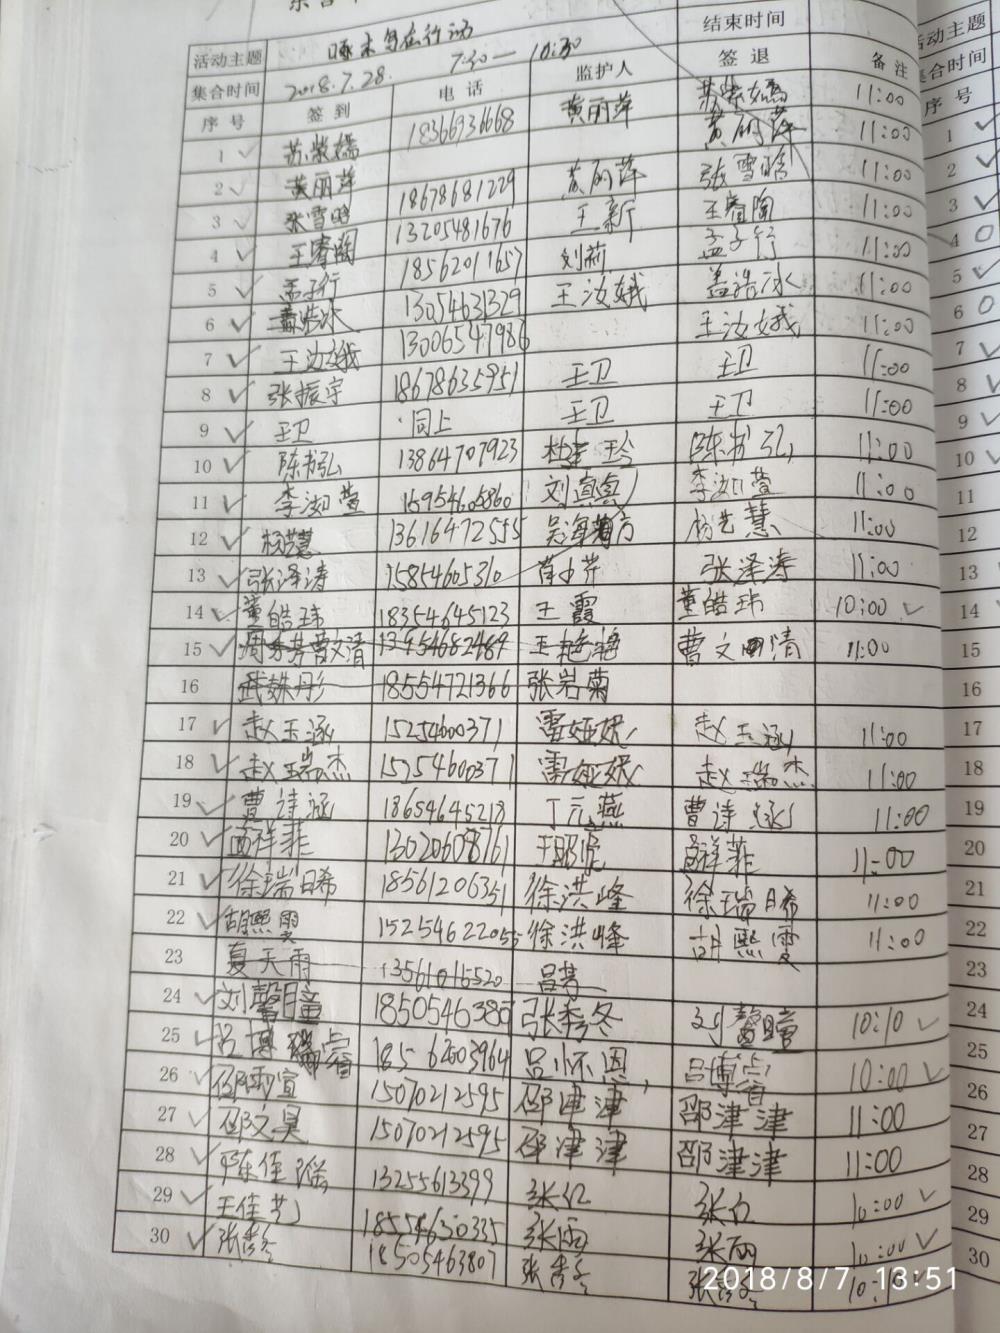 活动主题 啄木鸟在行动 结束时间
集合时间 2018.7.28. 7:30—10:30
序号 签到 电话 监护人 签退 备注
1 苏紫嫣 18366936668 黄丽萍 苏紫嫣 11:00
2 黄丽萍 黄丽萍 11:00
3 张雪晗 18678681229 黄丽萍 张雪晗 11:00
4 王睿陶 13205481676 王新 王睿陶 11:00
5 孟子行 18562011657 刘莉 孟子行 11:00
6 盖浩冰 13054631329 王汝娥 盖浩冰 11:00
7 王汝娥 13006547986 王汝娥 11:00
8 张振宇 18678635951 王卫 王卫 11:00
9 王卫 同上 王卫 王卫 11:00
10 陈书弘 13864707923 玲 陈书弘 11:00
11 李汝萱 15954605860 刘真真 李汝萱 11:00
12 慧 13616472555 吴海 慧 11:00
13 张泽涛 15854605310 张泽涛 11:00
14 董皓玮 18354645123 王霞 董皓玮 10:00
15 曹文清 13954682489 王艳艳 曹文清 11:00
16 武姝彤 18554721366 张岩菊
17 赵玉涵 15254600371 雷娅妮 赵玉涵 11:00
18 赵瑞杰 15254600371 雷娅妮 赵瑞杰 11:00
19 曹诗涵 18654645218 丁元燕 曹诗涵 11:00
20 祥菲 13020608761 王昭虎 祥菲 11:00
21 徐瑞晞 18561206351 徐洪峰 徐瑞晞 11:00
22 胡熙雯 15254622055 徐洪峰 胡熙雯 11:00
23 夏天雨 13561015520 吕芳
24 刘馨瞳 1850546380 张秀冬 刘馨瞳 10:10
25 吕博睿 18562603964 吕小恩 吕博睿 10:00
26 邵雨宣 15070212595 邵津津 邵津津 11:00
27 邵文昊 15070212595 邵津津 邵津津 11:00
28 陈佳 13255613399 张红 张红 10:00
29 王佳艺 18554630335 张丽 张丽 10:00
30 张秀冬 18505463807 张秀冬 张秀冬 10:10
活动主题
集合时间
序号
1
2
3
4
5
6
7
8
9
10
11
12
13
14
15
16
17
18
19
20
21
22
23
24
25
26
27
28
29
30
2018/8/7 13:51